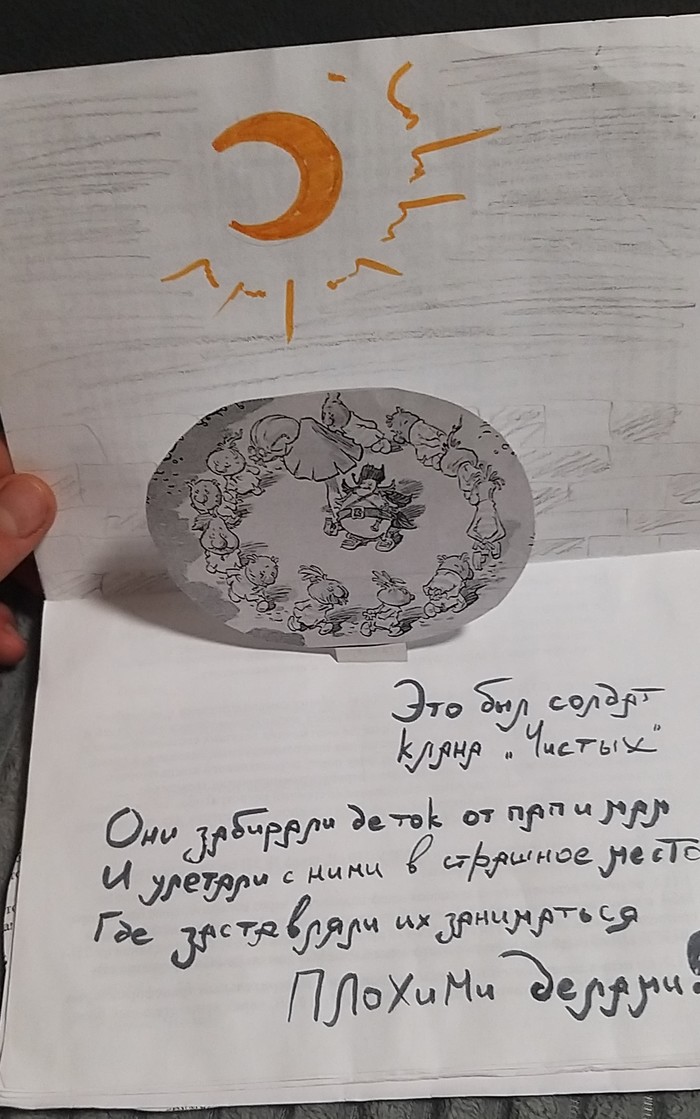 Это был солдат
клана „Чистых"
Они забирали деток от пап и мам
И улетали с ними в страшное место
Где заставляли их заниматься
ПЛОХИМИ делами!